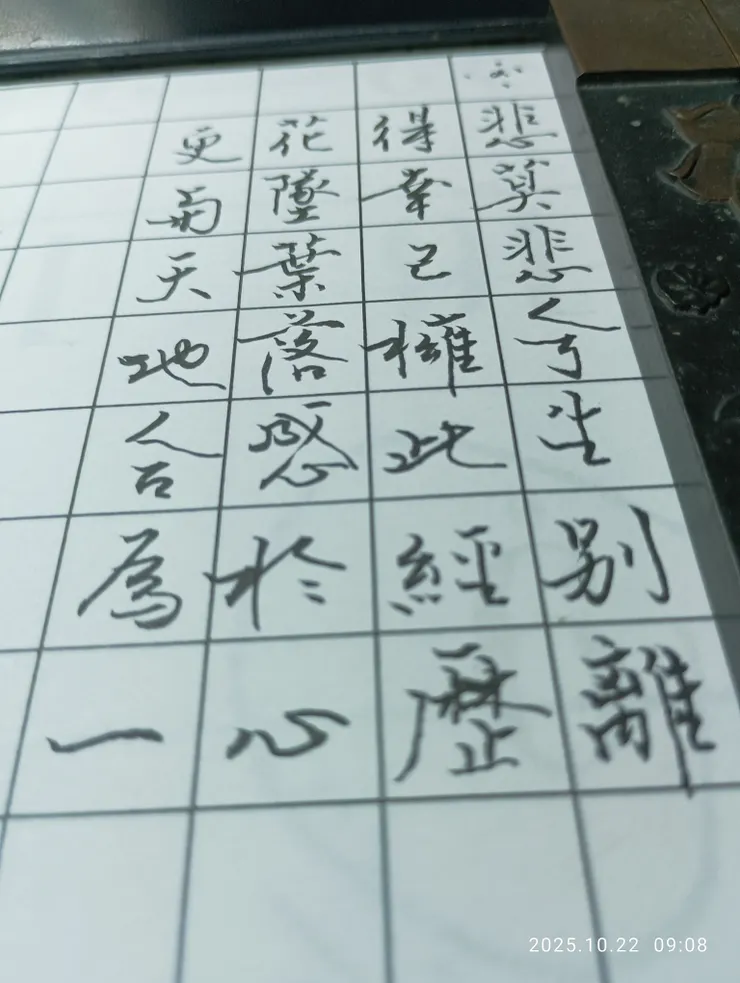 悲莫悲兮生别離
得幸已擁此經歷
花墜葉落感於心
更與天地合為一
2025.10.22 09:08